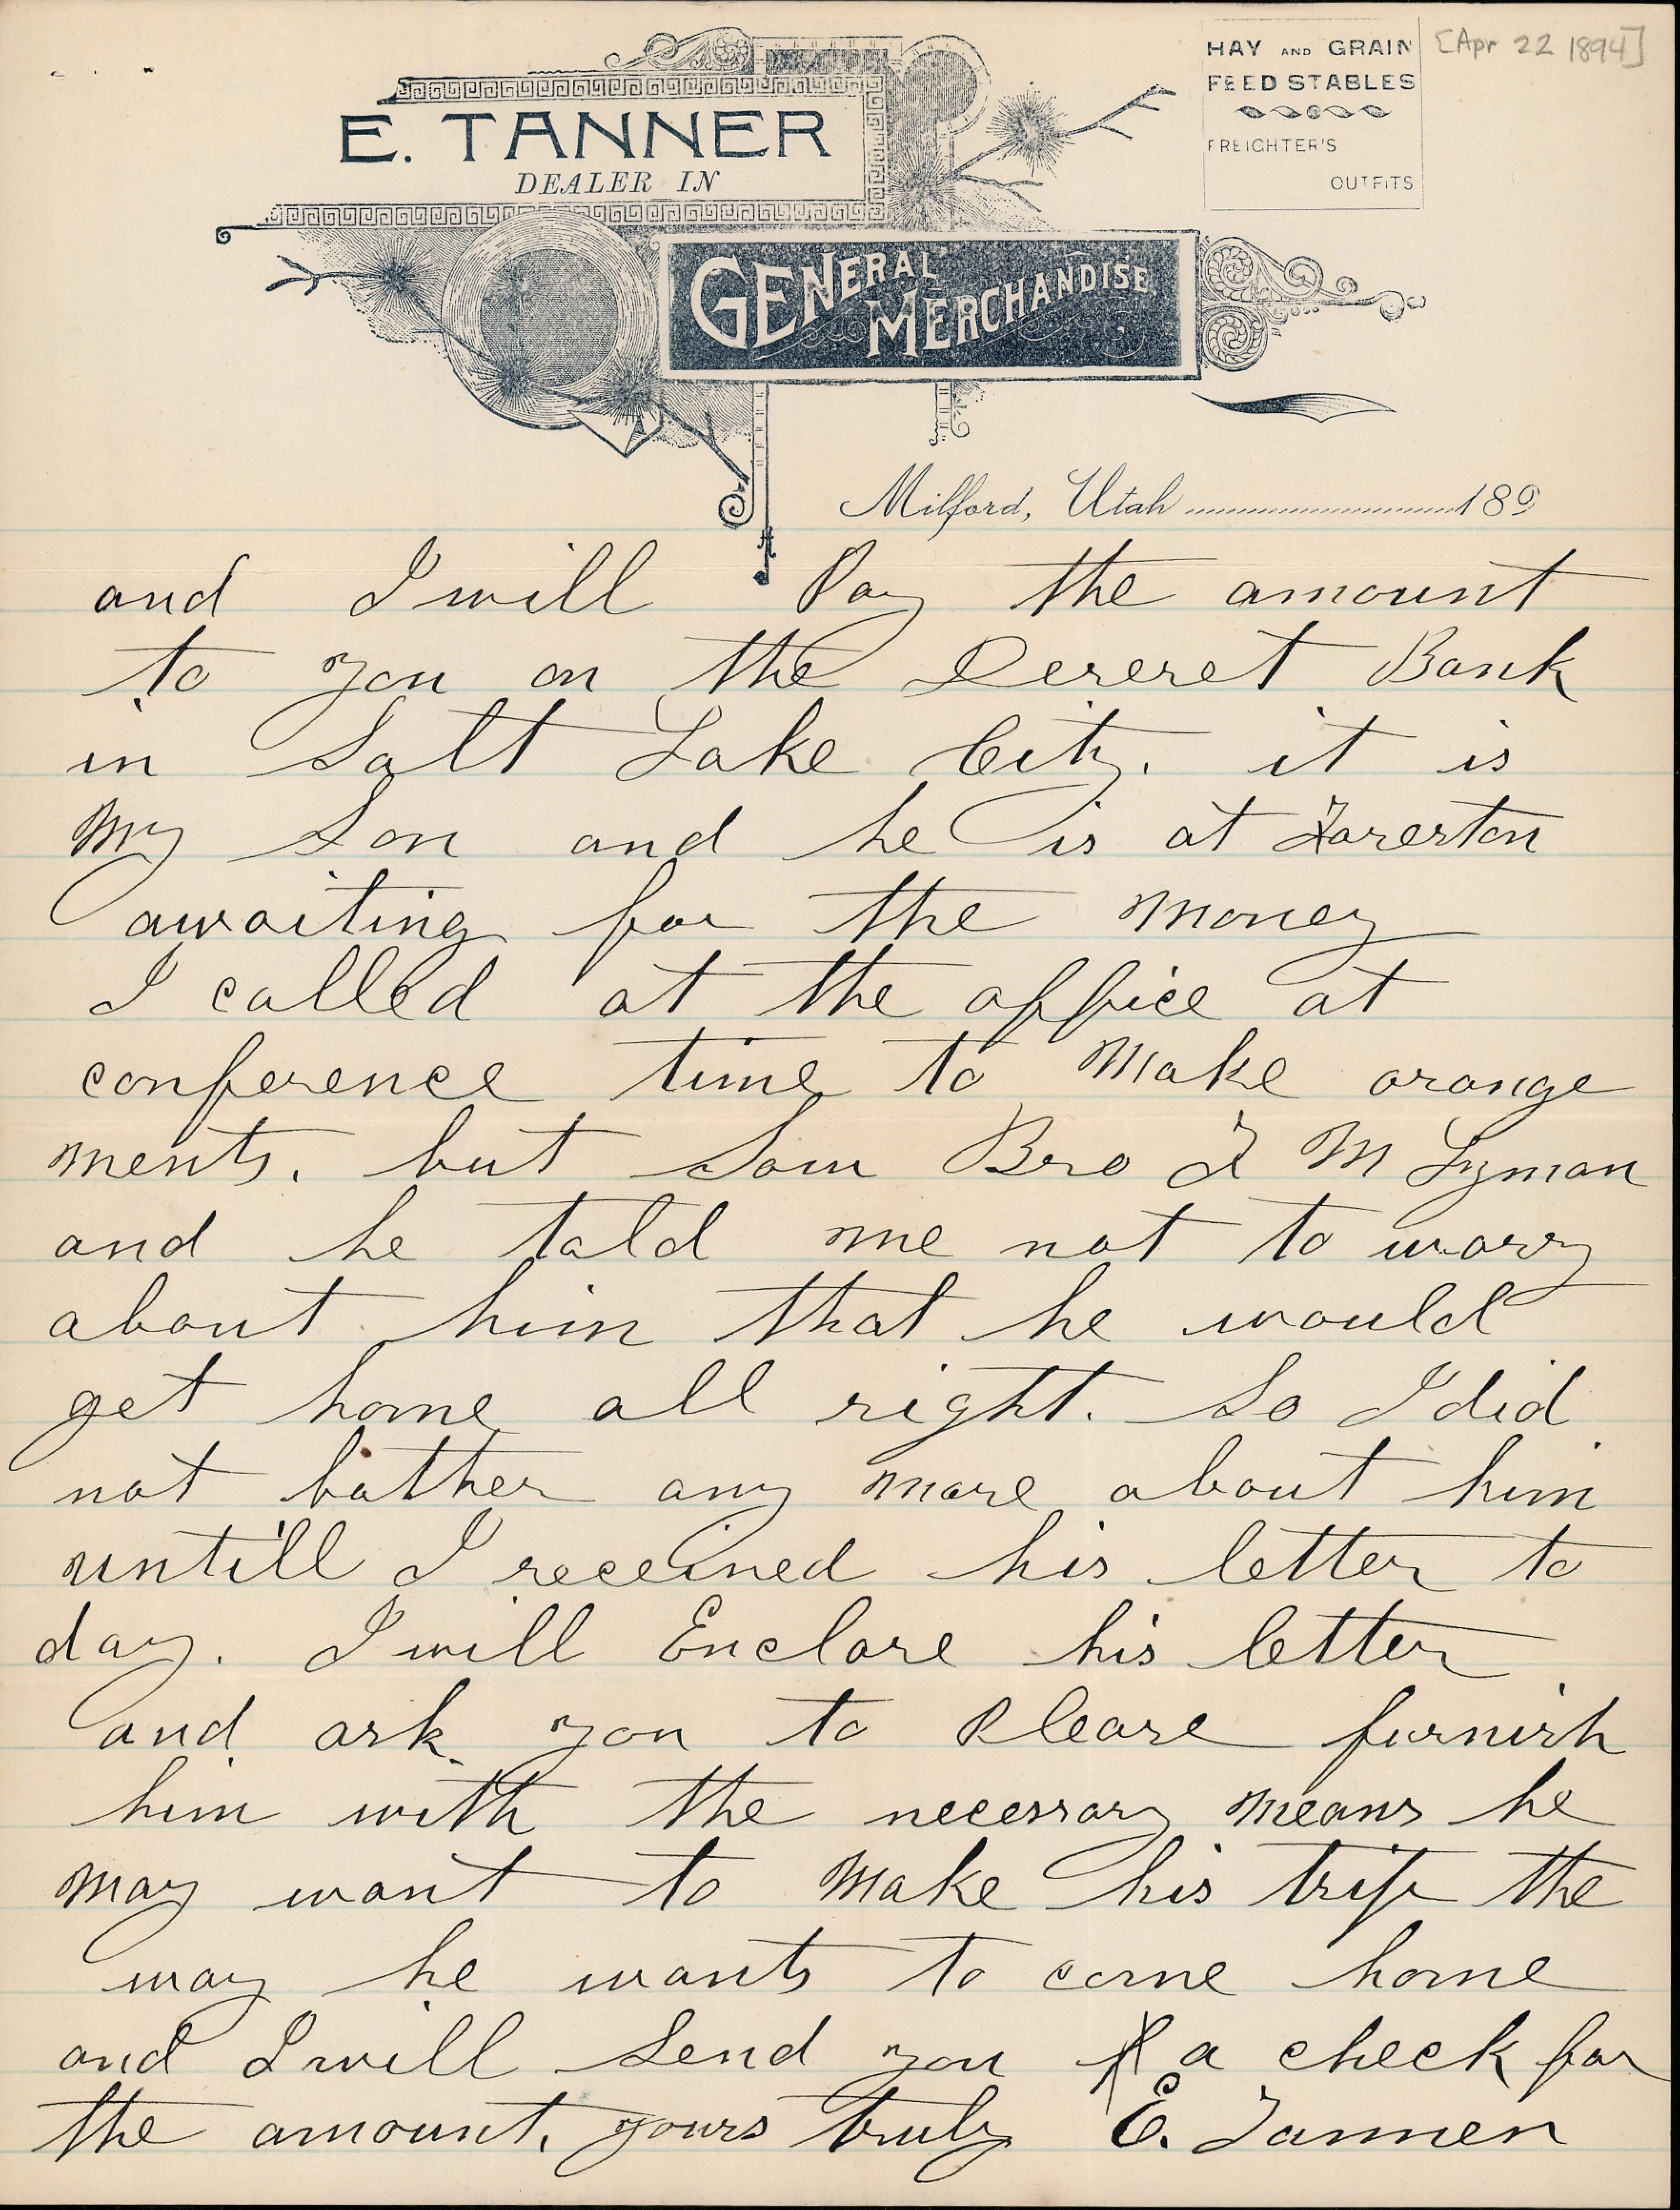 HAY AND GRAIN
FEED STABLES
FREIGHTER'S
OUTFITS
[Apr 22 1894]
E. TANNER
DEALER IN
GENERAL
MERCHANDISE
Milford, Utah 189
and I will Pay the amount
to you on the Deseret Bank
in Salt Lake City. it is
My Son and he is at
awaiting for the Money
I called at the office at
conference time to Make arange
ments. but Saw Bro F M Lyman
and he told me not to worry
about him that he would
get home all right. So I did
not bother any more about him
untill I received his letter to
day. I will Enclose his letter
and ask you to Please furnish
him with the necessary Means he
May want to Make his trip the
way he wants to come home
and I will Send you a check for
the amount. yours truly E. Tanner